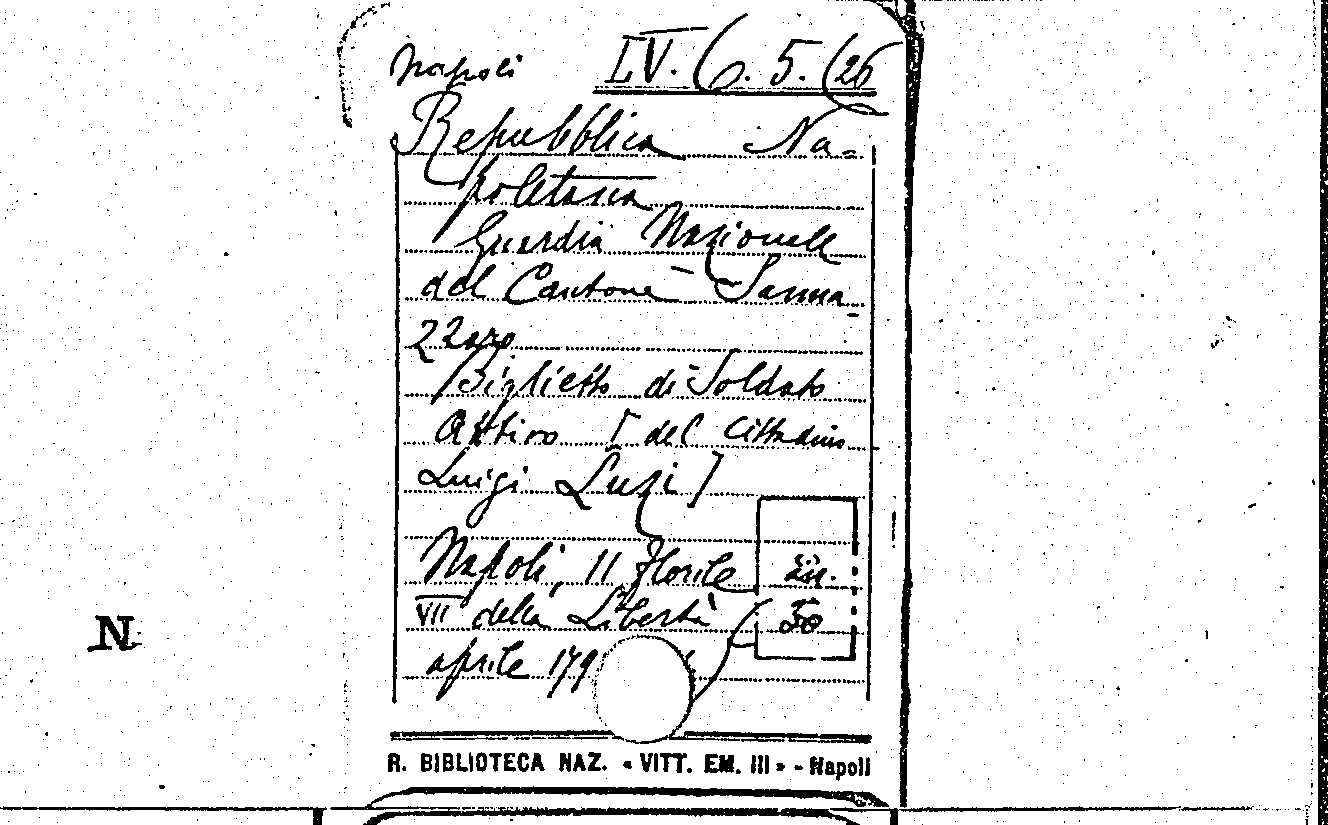 Napoli LV. 6. 5. (26
Repubblica Na-
poletana
Guardia Nazionale
del Cantone Sanna-
zzaro
Biglietto di Soldato
Attivo [ del Cittadino
Luigi Luzi ]
Napoli, 11 Florile
VII della Libertà (30
aprile 179
N
R. BIBLIOTECA NAZ. « VITT. EM. III » - Napoli